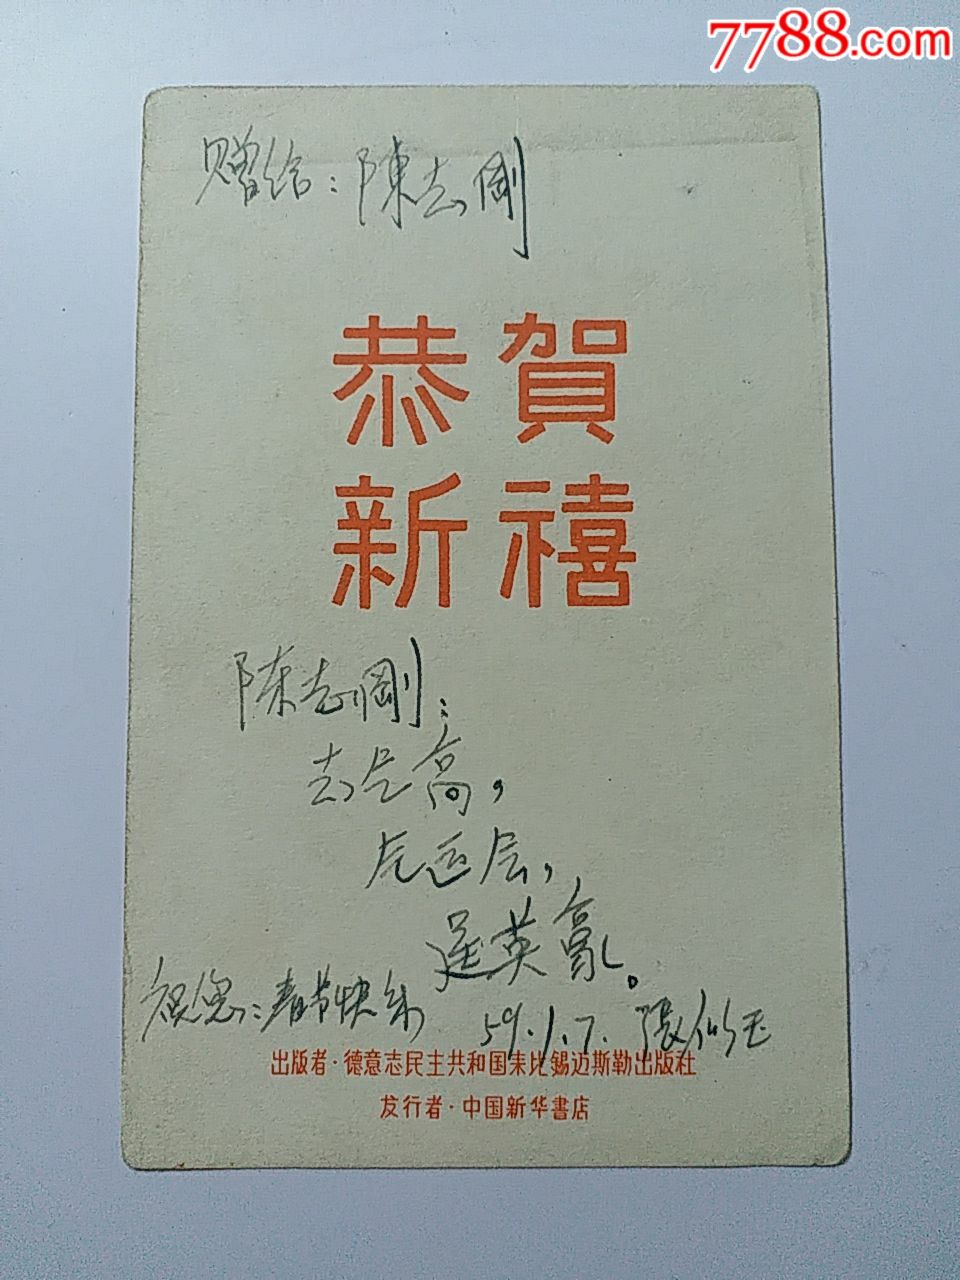 7788.com
赠给：陳志剛
恭賀
新禧
陈志剛：
志气高，
逞英豪。
祝您：春节快乐
59.1.7.
出版者·德意志民主共和国耒比锡迈斯勒出版社
发行者·中国新华書店